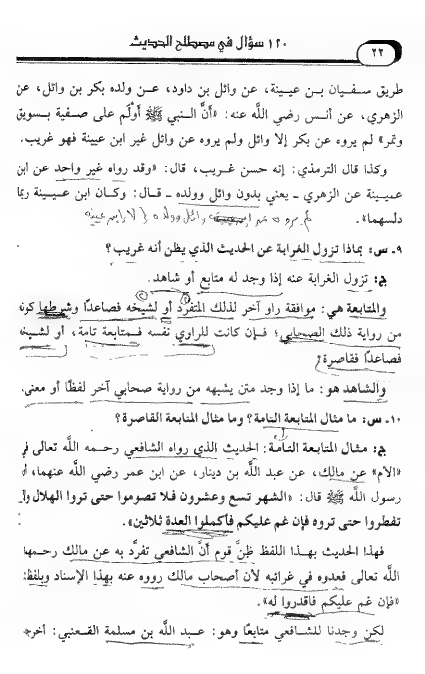 ١٢٠ سؤال في مصطلح الحديث
٢٢
طريق سفيان بن عيينة، عن وائل بن داود، عن ولده بكر بن وائل، عن
الزهري، عن أنس رضي الله عنه: «أنَّ النبي ﷺ أوْلَم على صفية بسويق
وتمر» لم يروه عن بكر إلا وائل ولم يروه عن وائل غير ابن عيينة فهو غريب.
وكذا قال الترمذي: إنه حسن غريب، قال: «وقد رواه غير واحد عن ابن
عيينة عن الزهري ـ يعني بدون وائل وولده ـ قال: وكان ابن عيينة ربما
دلسهما».
لم يروه عن وائل وولده إلا ابن عيينة
٩ـ س: بماذا تزول الغرابة عن الحديث الذي يظن أنه غريب؟
ج: تزول الغرابة عنه إذا وجد له متابع أو شاهد.
والمتابعة هي: موافقة راو آخر لذلك المتفرد أو لشيخه فصاعدًا وشرطها كونه
من رواية ذلك الصحابي؛ فإن كانت للراوي نفسه فمتابعة تامة، أو لشيخه
فصاعدًا فقاصرة
والشاهد هو: ما إذا وجد متن يشبهه من رواية صحابي آخر لفظًا أو معنى.
١٠ـ س: ما مثال المتابعة التامة؟ وما مثال المتابعة القاصرة؟
ج: مثال المتابعة التامة: الحديث الذي رواه الشافعي رحمه الله تعالى في
«الأم» عن مالك، عن عبد الله بن دينار، عن ابن عمر رضي الله عنهما، أن
رسول الله ﷺ قال: «الشهر تسع وعشرون فلا تصوموا حتى تروا الهلال ولا
تفطروا حتى تروه فإن غم عليكم فأكملوا العدة ثلاثين».
فهذا الحديث بهذا اللفظ ظنَّ قوم أنَّ الشافعي تفرَّد به عن مالك رحمهما
الله تعالى فعدوه في غرائبه لأن أصحاب مالك رووه عنه بهذا الإسناد وبلفظ:
«فإن غم عليكم فاقدروا له».
لكن وجدنا للشافعي متابعًا وهو: عبد الله بن مسلمة القعنبي: أخرجه